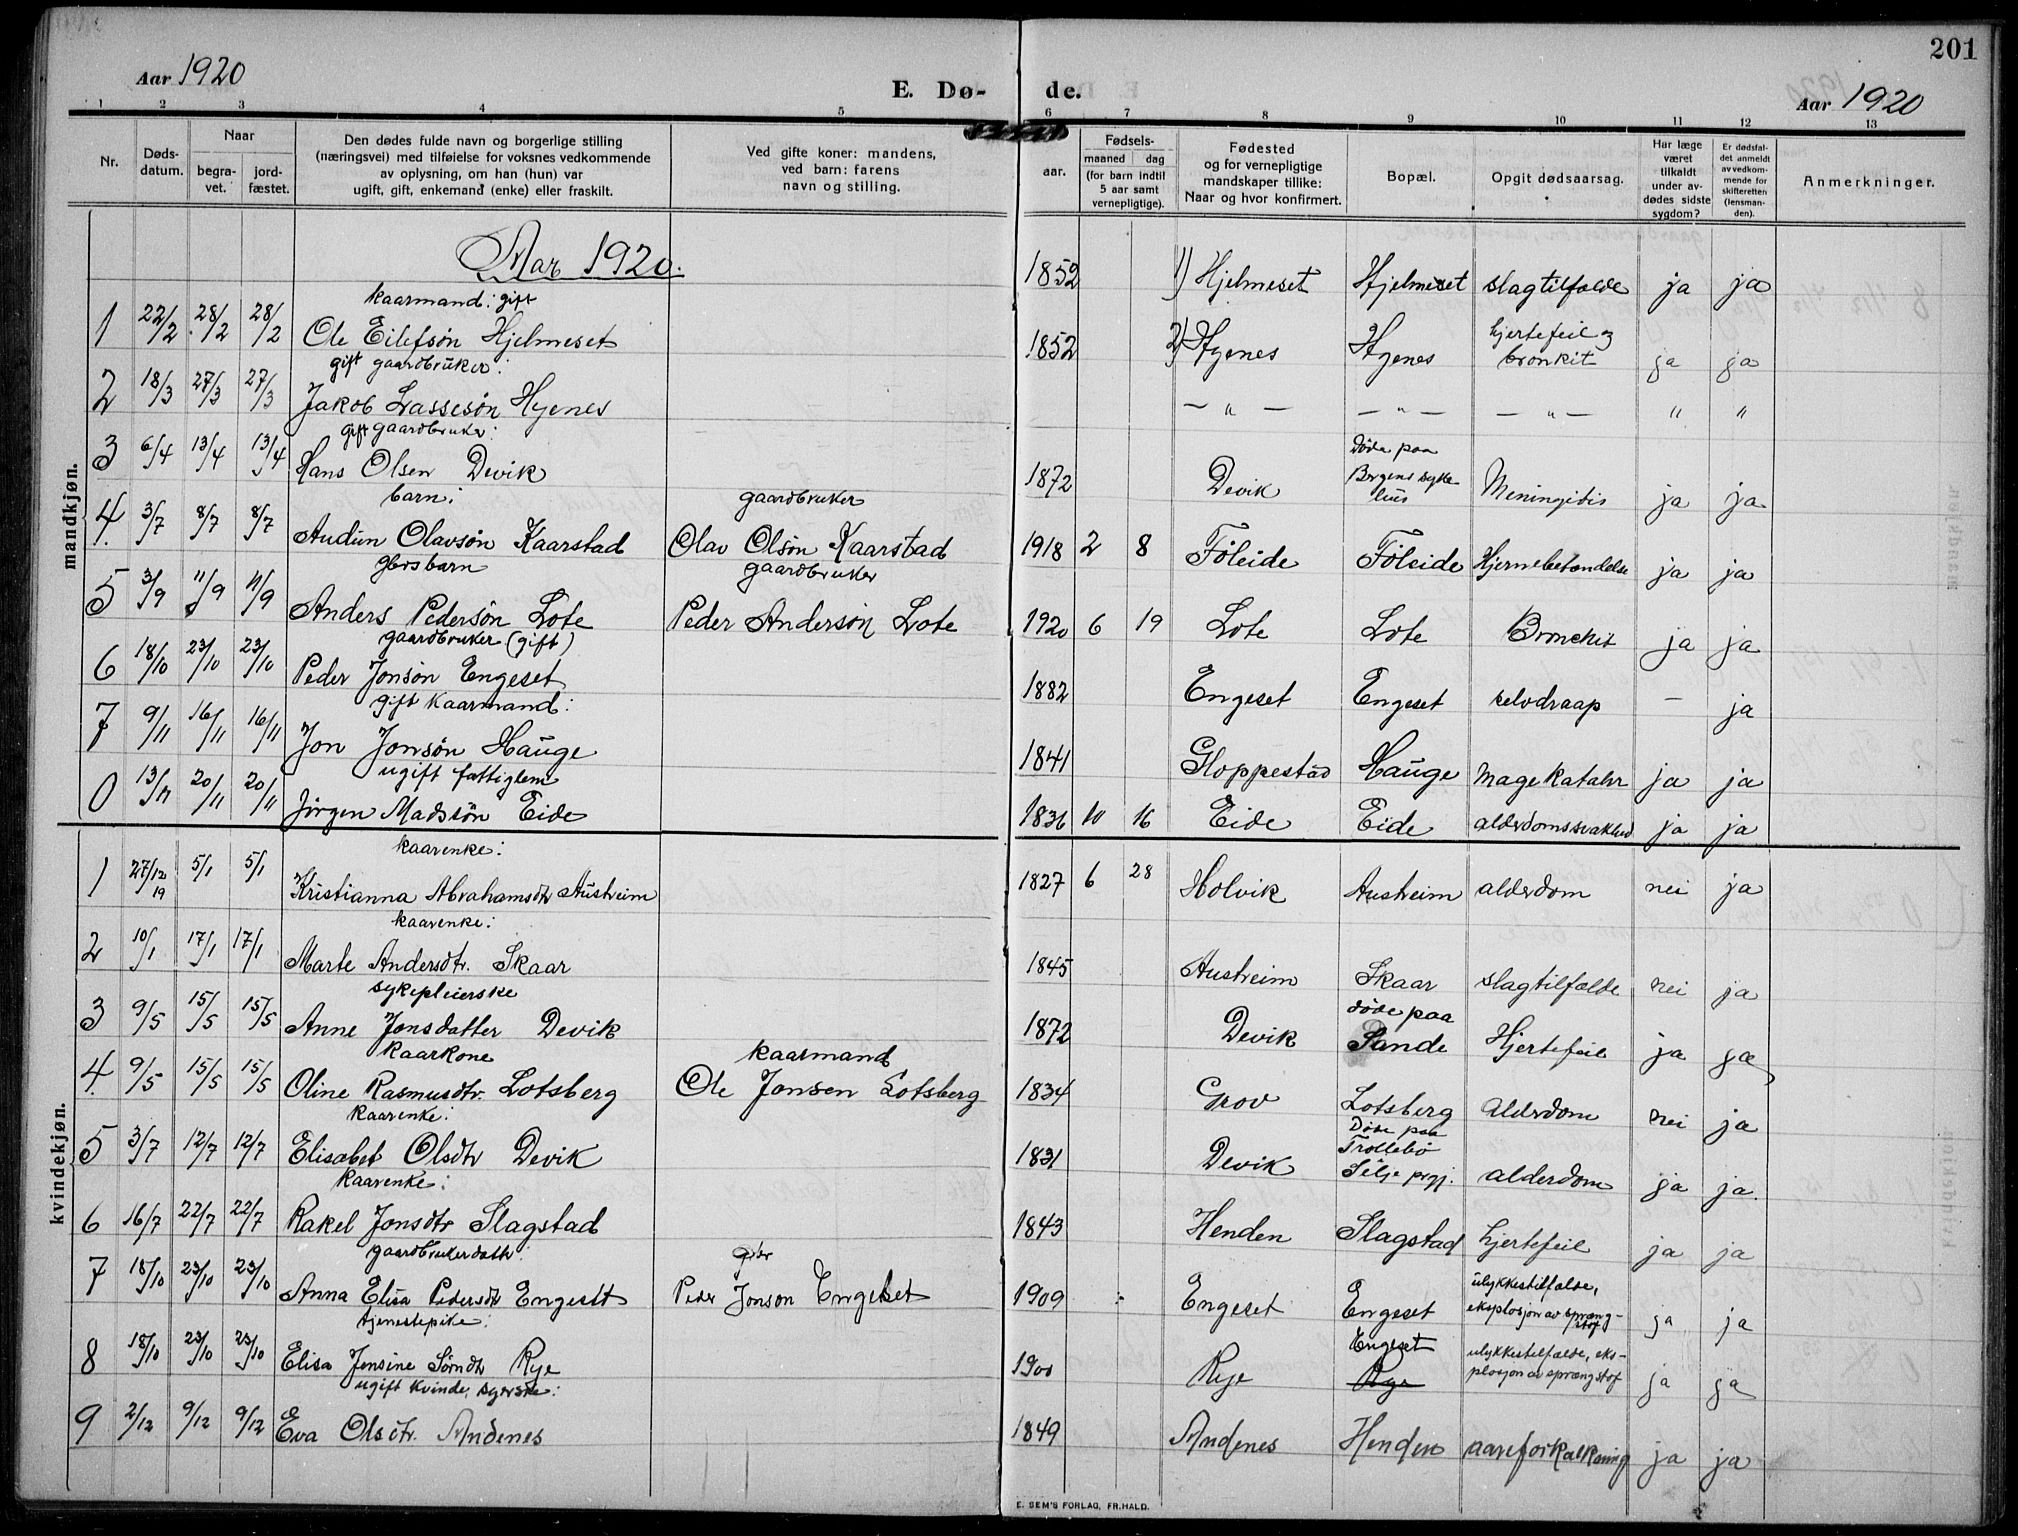 201
Aar 1920
E. Dø- de.
Aar 1920
1 2 3 4 5 6 7 8 9 10 11 12 13
Nr.
Døds-
datum.
Naar
begra-
vet.
jord-
fæstet.
Den dødes fulde navn og borgerlige stilling
(næringsvei) med tilføielse for voksnes vedkommende
av oplysning, om han (hun) var
ugift, gift, enkemand (enke) eller fraskilt.
Ved gifte koner: mandens,
ved barn: farens
navn og stilling.
aar.
Fødsels-
maaned dag
(for barn indtil
5 aar samt
vernepligtige).
Fødested
og for vernepligtige
mandskaper tillike:
Naar og hvor konfirmert.
Bopæl.
Opgit dødsaarsag.
Har læge
været
tilkaldt
under av-
dødes sidste
sygdom?
Er dødsfal-
det anmeldt
av vedkom-
mende for
skifteretten
(lensman-
den).
Anmerkninger.
mandkjøn.
Aar 1920.
kaarmand: gift
1 22/2 28/2 28/2 Ole Eilefsøn Hjelmeset 1852 1) Hjelmeset Hjelmeset slagtilfælde ja ja
gift gaardbruker:
hjertefeil og
2 18/3 27/3 27/3 Jakob Lassesøn Hyenes 1852 2) Hyenes Hyenes bronkit ja ja
— " — — " — — " — " "
gift gaardbruker:
Døde paa
3 6/4 13/4 13/4 Hans Olsen Devik 1872 Devik Bergens syke
hus Meningitis ja ja
barn: gaardbruker
4. 3/7 8/7 8/7 Audun Olavsøn Kaarstad Olav Olsøn Kaarstad 1918 2 8 Føleide Føleide Hjernebetændelse ja ja
gbrs barn gaardbruker
5 3/9 11/9 11/9 Anders Pedersøn Lote Peder Andersøn Lote 1920 6 19 Lote Lote Bronchit ja ja
gaardbruker (gift)
6 18/10 23/10 23/10 Peder Jonsøn Engeset 1882 Engeset Engeset selvdraap — ja
gift kaarmand:
7 9/11 16/11 16/11 Jon Jonsøn Hauge 1841 Gloppestad Hauge magekatahr ja ja
ugift fattiglem
0 13/11 20/11 20/11 Jørgen Madssøn Eide 1836 10 16 Eide Eide alderdomssvakhed ja ja
kvindekjøn.
kaarenke:
1 27/12 19 5/1 5/1 Kristianna Abrahamsdtr Austreim 1827 6 28 Holvik Austreim alderdom nei ja
kaarenke:
2 10/1 17/1 17/1 Marte Andersdtr. Skaar 1845 Austreim Skaar slagtilfælde nei ja
sykepleierske
døde paa
3 9/5 15/5 15/5 Anne Jonsdatter Devik 1872 Devik Sande Hjertefeil ja ja
kaarkone kaarmand
4. 9/5 15/5 15/5 Oline Rasmusdtr. Lotsberg Ole Jonsen Lotsberg 1834 Grov Lotsberg Alderdom nei ja
kaarenke:
Døde paa
Trollebø
5 3/7 12/7 12/7 Elisabet Olsdtr Devik 1831 Devik Selje prgj. alderdom ja ja
kaarenke:
6 16/7 22/7 22/7 Rakel Jonsdtr Slagstad 1843 Henden Slagstad hjertefeil ja ja
gaardbrukerdatter: gbr
ulykkestilfælde,
7 18/10 23/10 23/10 Anna Elisa Pedersdtr Engeset Peder Jonson Engeset 1909 Engeset Engeset eksplosjon av spræng-
stof ja ja
tjenestepike:
Engeset ulykkestilfælde, eks-
8 18/10 23/10 23/10 Elisa Jensine Sørndtr Rye 1900 Rye Rye plosjon av sprængstof ja ja
ugift kvinde, syerske:
9 2/12 9/12 9/12 Eva Olsdtr. Andenes 1849 Andenes Henden aareforkalkning ja ja
E. SEM'S FORLAG, FR.HALD.